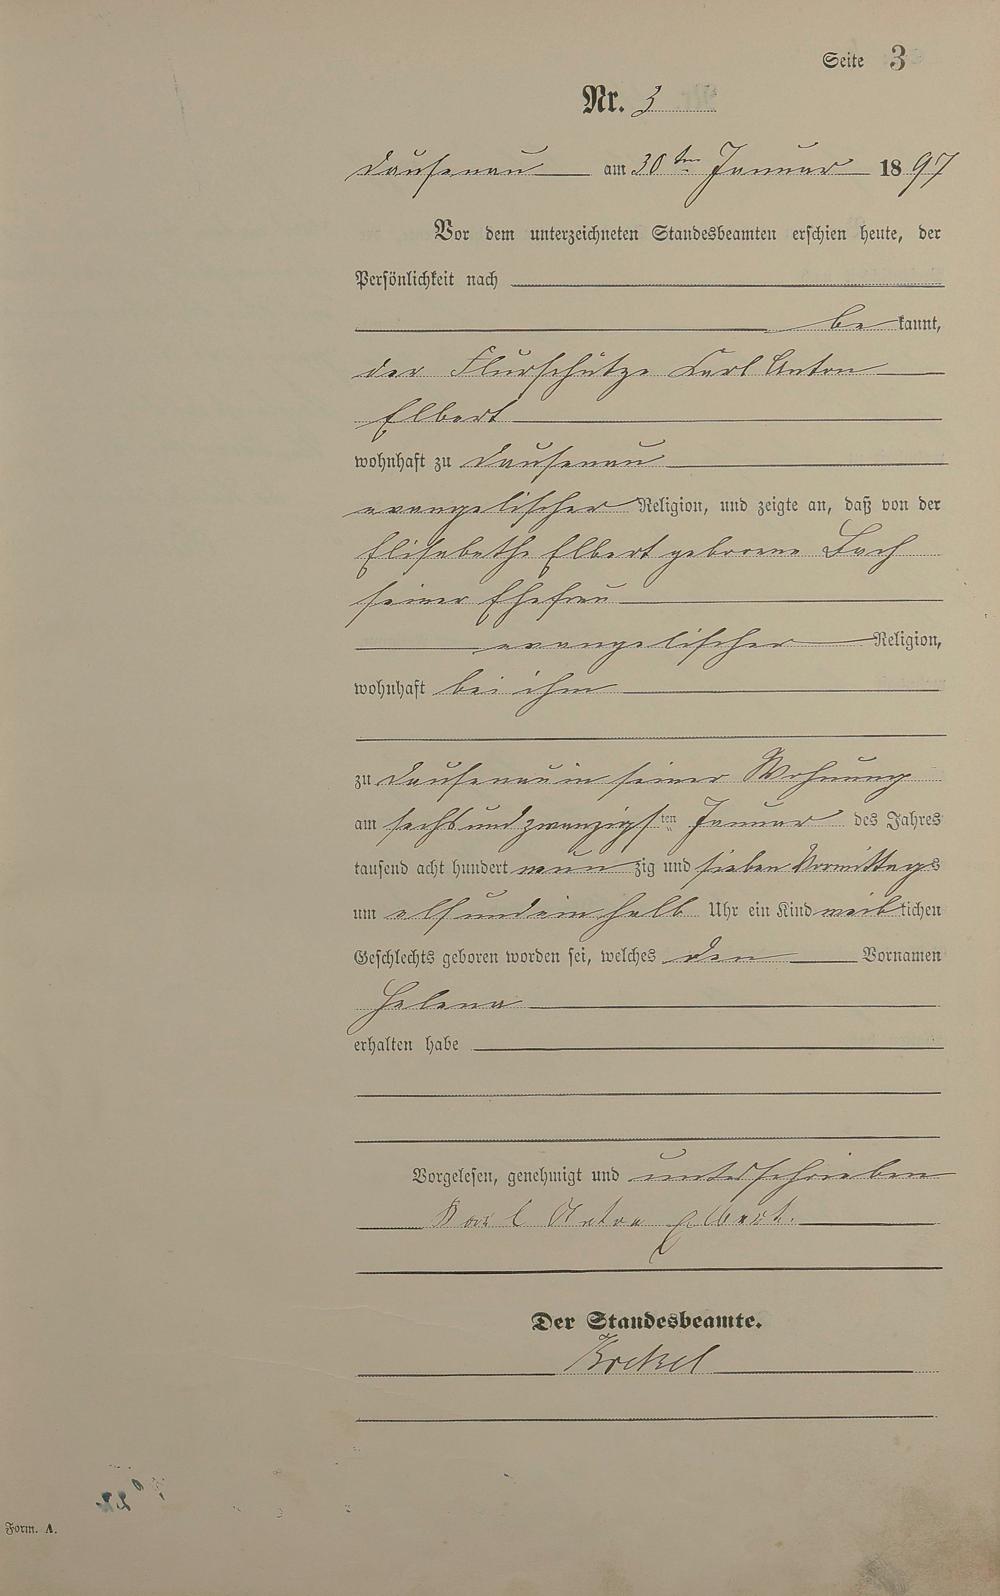 Seite 3
Nr. 3
Dausenau am 30ten Januar 1897
Vor dem unterzeichneten Standesbeamten erschien heute, der
Persönlichkeit nach
bekannt,
der Flurschütze Karl Anton
Elbert
wohnhaft zu Dausenau
evangelischer Religion, und zeigte an, daß von der
Elisabethe Elbert geborene Bach
seiner Ehefrau
evangelischer Religion,
wohnhaft bei ihm
zu Dausenau in seiner Wohnung
am sechsundzwanzigsten Januar des Jahres
tausend acht hundert neunzig und sieben Vormittags
um elfundeinhalb Uhr ein Kind weiblichen
Geschlechts geboren worden sei, welches den Vornamen
Helena
erhalten habe
Vorgelesen, genehmigt und unterschrieben
Karl Anton Elbert.
Der Standesbeamte.
Form. A.